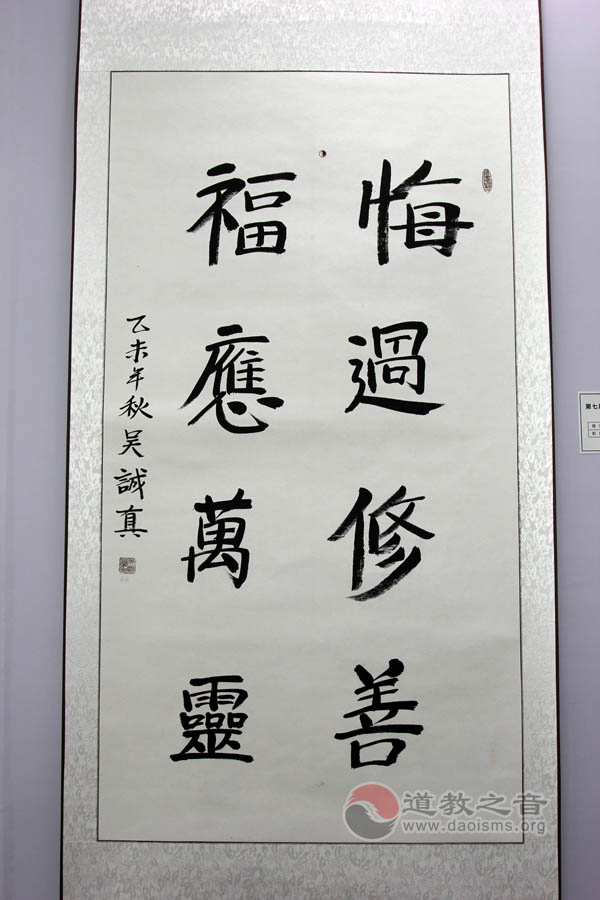 悔過修善
福應萬靈
乙未年秋吴誠真
第七
道教之音
www.daoisms.org